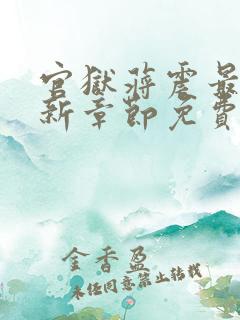 官獄蔣震最
新章節免費
金香盈
未經同意禁止轉載